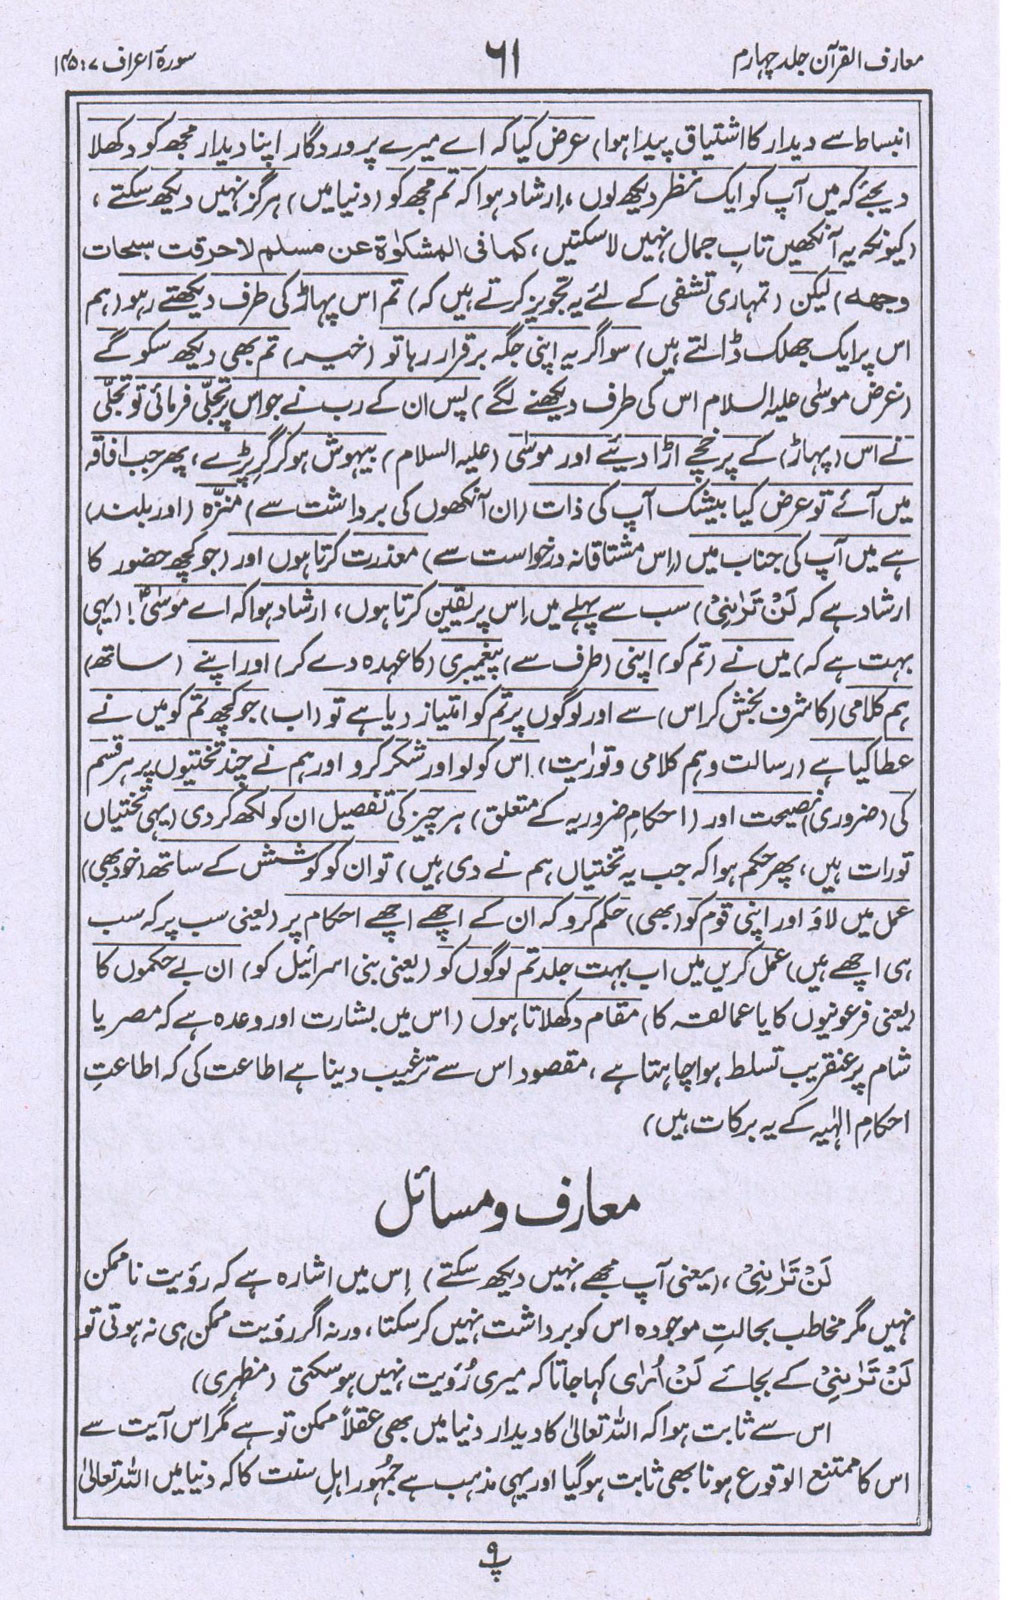 معارف القرآن جلد چہارم
۶۱
سورۂ اعراف ۷ : ۱۴۵
انبساط سے دیدار کا اشتیاق پیدا ہوا) عرض کیا کہ اے میرے پروردگار اپنا دیدار مجھ کو دکھلا
دیجئے کہ میں آپ کو ایک نظر دیکھ لوں، ارشاد ہوا کہ تم مجھ کو (دنیا میں) ہرگز نہیں دیکھ سکتے،
(کیونکہ یہ آنکھیں تابِ جمال نہیں لا سکتیں، کما فی المشکوٰۃ عن مسلم لاحرقت سبحات
وجھہ) لیکن (تمہاری تشفی کے لئے یہ تجویز کرتے ہیں کہ) تم اس پہاڑ کی طرف دیکھتے رہو (ہم
اس پر ایک جھلک ڈالتے ہیں) سو اگر یہ اپنی جگہ برقرار رہا تو (خیر) تم بھی دیکھ سکو گے
(غرض موسٰی علیہ السلام اس کی طرف دیکھنے لگے) پس ان کے رب نے جو اس پر تجلّی فرمائی تو تجلّی
نے اس (پہاڑ) کے پرخچے اڑا دیئے اور موسٰی (علیہ السلام) بیہوش ہو کر گر پڑے، پھر جب افاقہ
میں آئے تو عرض کیا بیشک آپ کی ذات (ان آنکھوں کی برداشت سے) منزّہ (اور بلند)
ہے میں آپ کی جناب میں (اِس مشتاقانہ درخواست سے) معذرت کرتا ہوں اور (جو کچھ حضور کا
ارشاد ہے کہ لَنْ تَرٰىنِیْ) سب سے پہلے میں اِس پر یقین کرتا ہوں، ارشاد ہوا کہ اے موسٰیؑ! (یہی
بہت ہے کہ) میں نے (تم کو) اپنی (طرف سے) پیغمبری (کا عہدہ دے کر) اور اپنے (ساتھ)
ہم کلامی (کا شرف بخش کر اس) سے اور لوگوں پر تم کو امتیاز دیا ہے تو (اب) جو کچھ تم کو میں نے
عطا کیا ہے (رسالت و ہم کلامی و توریت) اس کو لو اور شکر کرو اور ہم نے چند تختیوں پر ہر قسم
کی (ضروری) نصیحت اور (احکامِ ضروریہ کے متعلق) ہر چیز کی تفصیل ان کو لکھ کر دی (یہی تختیاں
تورات ہیں، پھر حکم ہوا کہ جب یہ تختیاں ہم نے دی ہیں) تو ان کو کوشش کے ساتھ (خود بھی)
عمل میں لاؤ اور اپنی قوم کو (بھی) حکم کرو کہ ان کے اچھے اچھے احکام پر (یعنی سب پر کہ سب
ہی اچھے ہیں) عمل کریں میں اب بہت جلد تم لوگوں کو (یعنی بنی اسرائیل کو) ان بے حکموں کا
(یعنی فرعونیوں کا یا عمالقہ کا) مقام دکھلاتا ہوں (اس میں بشارت اور وعدہ ہے کہ مصر یا
شام پر عنقریب تسلط ہوا چاہتا ہے، مقصود اس سے ترغیب دینا ہے اطاعت کی کہ اطاعتِ
احکامِ الٰہیہ کے یہ برکات ہیں)
معارف و مسائل
لَنْ تَرٰىنِیْ، (یعنی آپ مجھے نہیں دیکھ سکتے) اِس میں اشارہ ہے کہ رؤیت ناممکن
نہیں مگر مخاطب بحالتِ موجودہ اس کو برداشت نہیں کر سکتا، ورنہ اگر رؤیت ممکن ہی نہ ہوتی تو
لَنْ تَرٰىنِیْ کے بجائے لَنْ اُرٰی کہا جاتا کہ میری رُؤیت نہیں ہو سکتی (مظہری)
اس سے ثابت ہوا کہ اللہ تعالیٰ کا دیدار دنیا میں بھی عقلاً ممکن تو ہے مگر اس آیت سے
اس کا ممتنع الوقوع ہونا بھی ثابت ہو گیا اور یہی مذہب ہے جمہُور اہلِ سنت کا کہ دنیا میں اللہ تعالیٰ
پ ۹